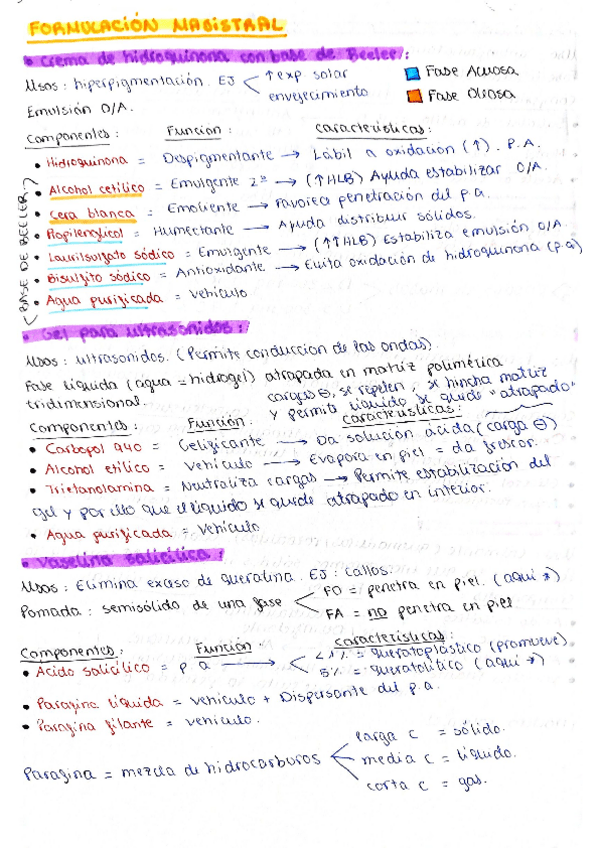 FORMULACIÓN MAGISTRAL
• Crema de hidroquinona con base de Beeler:
Usos: hiperpigmentación. EJ ↑exp solar
envejecimiento
Fase Acuosa
Fase Oleosa
Emulsión O/A.
Componentes: Función: Características:
• Hidroquinona = Despigmentante → Lábil a oxidación (↑). P.A.
• Alcohol cetílico = Emulgente 2º → (↑HLB) Ayuda estabilizar O/A
• Cera blanca = Emoliente → Favorece penetración del p.a.
• Propilenglicol = Humectante → Ayuda distribuir sólidos.
• Laurilsulfato sódico = Emulgente → (↑↑HLB) Estabiliza emulsión O/A.
• Bisulfito sódico = Antioxidante → Evita oxidación de hidroquinona (p.a)
• Agua purificada = vehículo
(BASE DE BEELER)
• Gel para ultrasonidos:
Usos: ultrasonidos. (Permite conduccion de las ondas).
Fase líquida (agua = hidrogel) atrapada en matriz polimérica
tridimensional. cargas ⊖, se repelen, se hincha matriz
y permite líquido se quede "atrapado"
Componentes: Función: Características:
• Carbopol 940 = Gelificante → Da solución ácida (carga ⊖)
• Alcohol etílico = Vehículo → Evapora en piel = da frescor.
• Trietanolamina = Neutraliza cargas → Permite estabilización del
gel y por ello que el líquido se quede atrapado en interior.
• Agua purificada = vehículo
• Vaselina salicílica:
Usos: Elimina exceso de queratina. EJ: callos.
Pomada: semisólido de una fase FO = penetra en piel. (aquí *)
FA = no penetra en piel
Componentes: Función: Características:
• Acido salicílico = p a → <1% = queratoplástico (promueve).
5% = queratolítico (aquí *)
• Parafina líquida = vehículo + Dispersante del p.a.
• Parafina filante = vehículo.
Parafina = mezcla de hidrocarburos larga c = sólido.
media c = líquido.
corta c = gas.